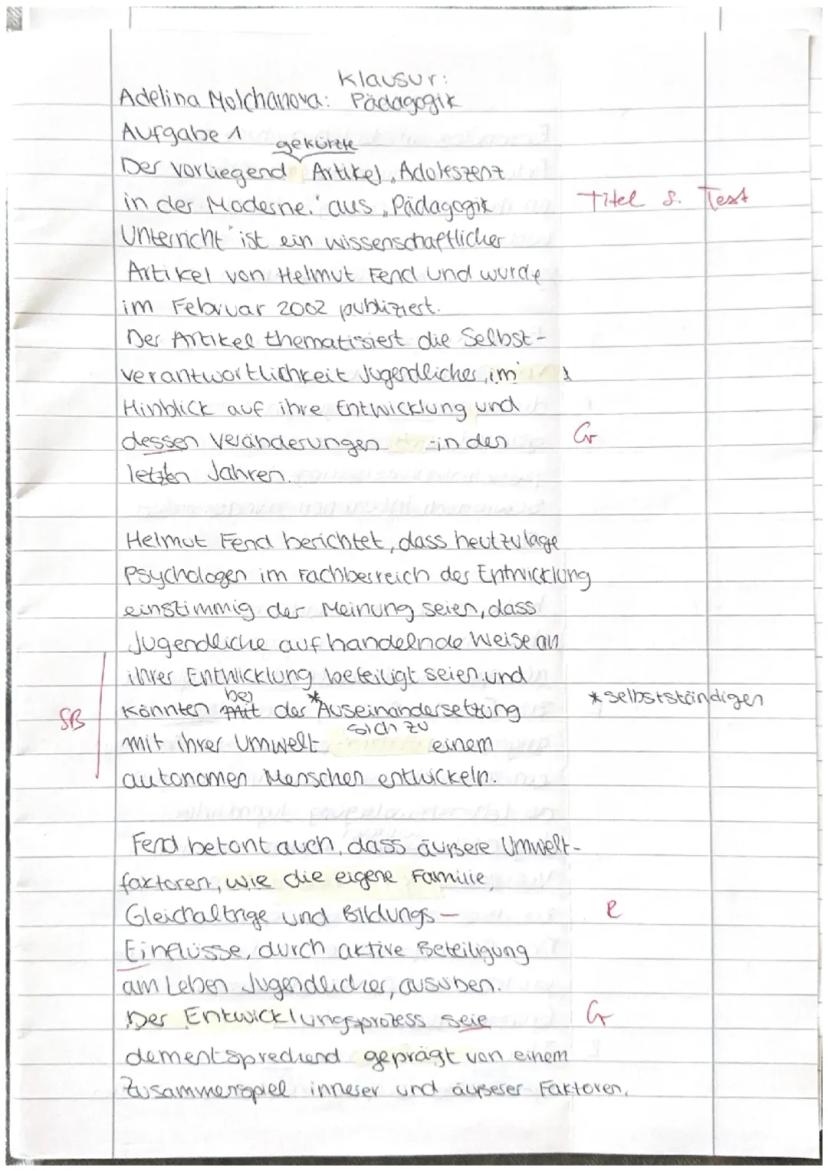 Klausur:
Adelina Molchanova: Pädagogik
Aufgabe 1
gekürzte
Der vorliegend Artikel „Adoleszenz
in der Moderne." aus „Pädagogik
Titel s. Text
Unterricht" ist ein wissenschaftlicher
Artikel von Helmut Fend und wurde
im Februar 2002 publiziert.
Der Artikel thematisiert die Selbst-
verantwortlichkeit Jugendlicher, im
Hinblick auf ihre Entwicklung und
dessen Veränderungen in den
G
letzten Jahren.
Helmut Fend berichtet, dass heutzutage
Psychologen im Fachberreich der Entwicklung
einstimmig der Meinung seien, dass
Jugendliche auf handelnde Weise an
ihrer Entwicklung beteiligt seien und
bei
könnten mit der *Auseinandersetzung
*selbstständigen
SB
sich zu
mit ihrer Umwelt einem
autonomen Menschen entwickeln.
Fend betont auch, dass äußere Umwelt-
faktoren, wie die eigene Familie
Gleichaltrige und Bildungs-
R
Einflüsse, durch aktive Beteiligung
am Leben Jugendlicher, ausüben.
Der Entwicklungsprozess seie
G
dementsprechend geprägt von einem
Zusammenspiel innerer und äußerer Faktoren.